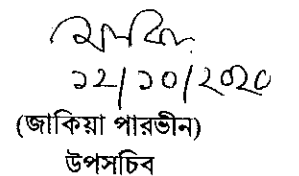 ১২/১০/২০২০
(জাকিয়া পারভীন)
উপসচিব